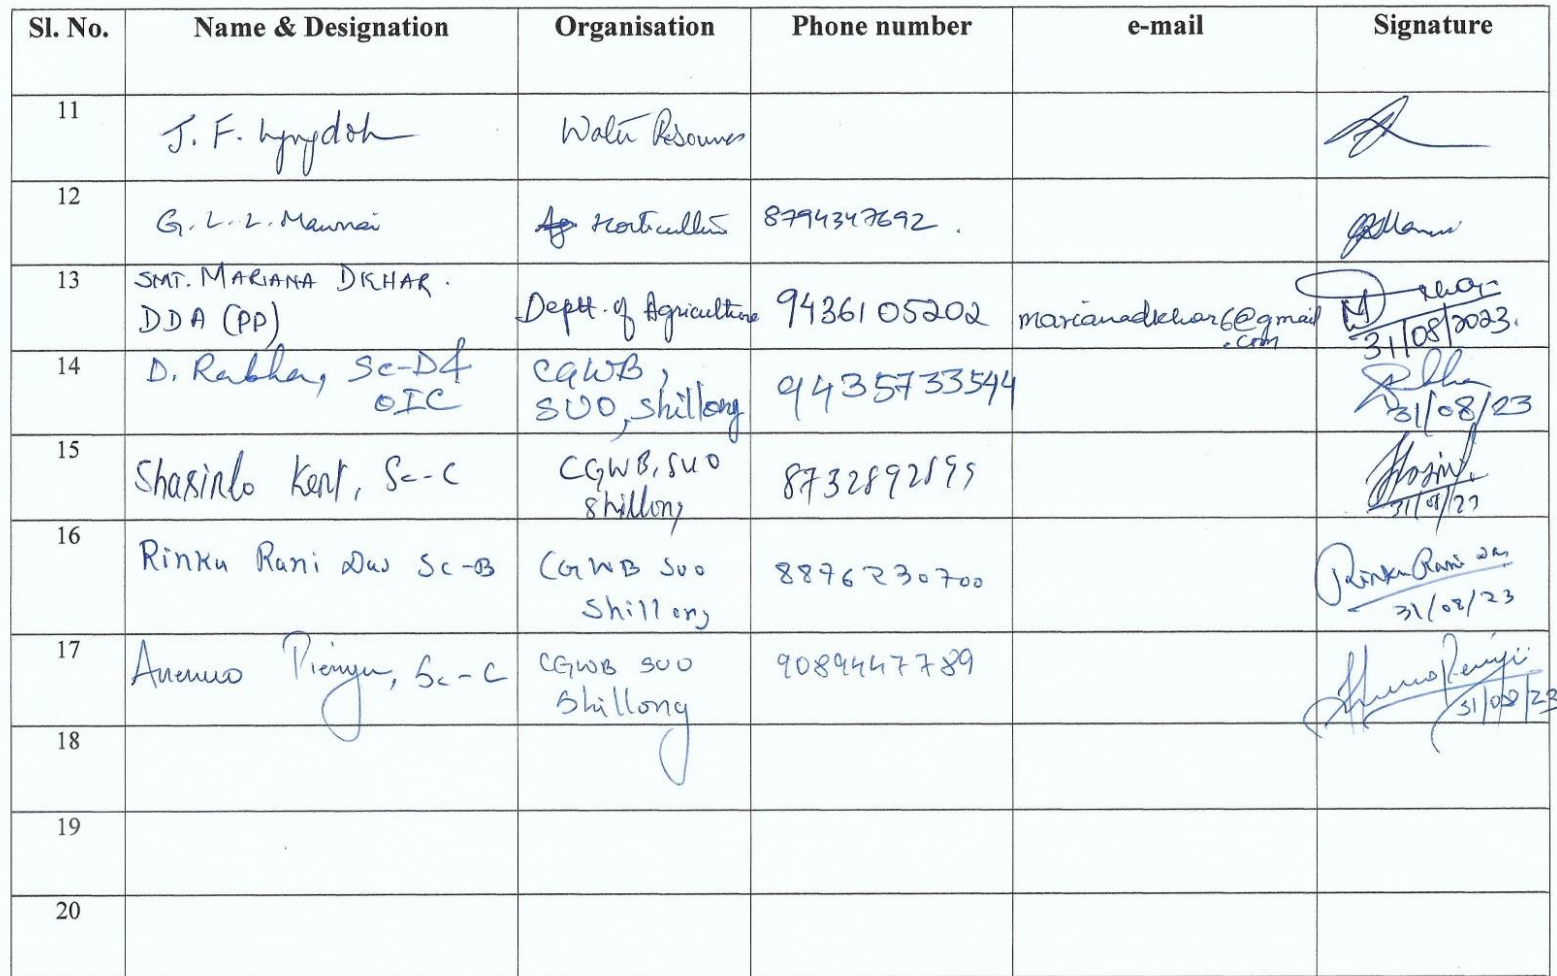 Sl. No. Name & Designation Organisation Phone number e-mail Signature
11 J. F. Lyngdoh Water Resources
12 G. L. L. Mawnai Horticulture 8794347692.
13 SMT. MARIANA DKHAR.
DDA (PP) Deptt. of Agriculture 9436105202 marianadkhar6@gmail
.com
31/08/2023.
14 D. Rabha, Sc-D &
OIC
CGWB,
SUO, Shillong 9435733544
31/08/23
15 Shasinlo Kent, Sc-C CGWB, SUO
Shillong
31/08/23
16 Rinku Rani Das Sc-B CGWB SUO
Shillong 8876230700 Rinku Rani Das
31/08/23
17 Sc-C CGWB SUO
Shillong 9089447789
31/08/23
18
19
20